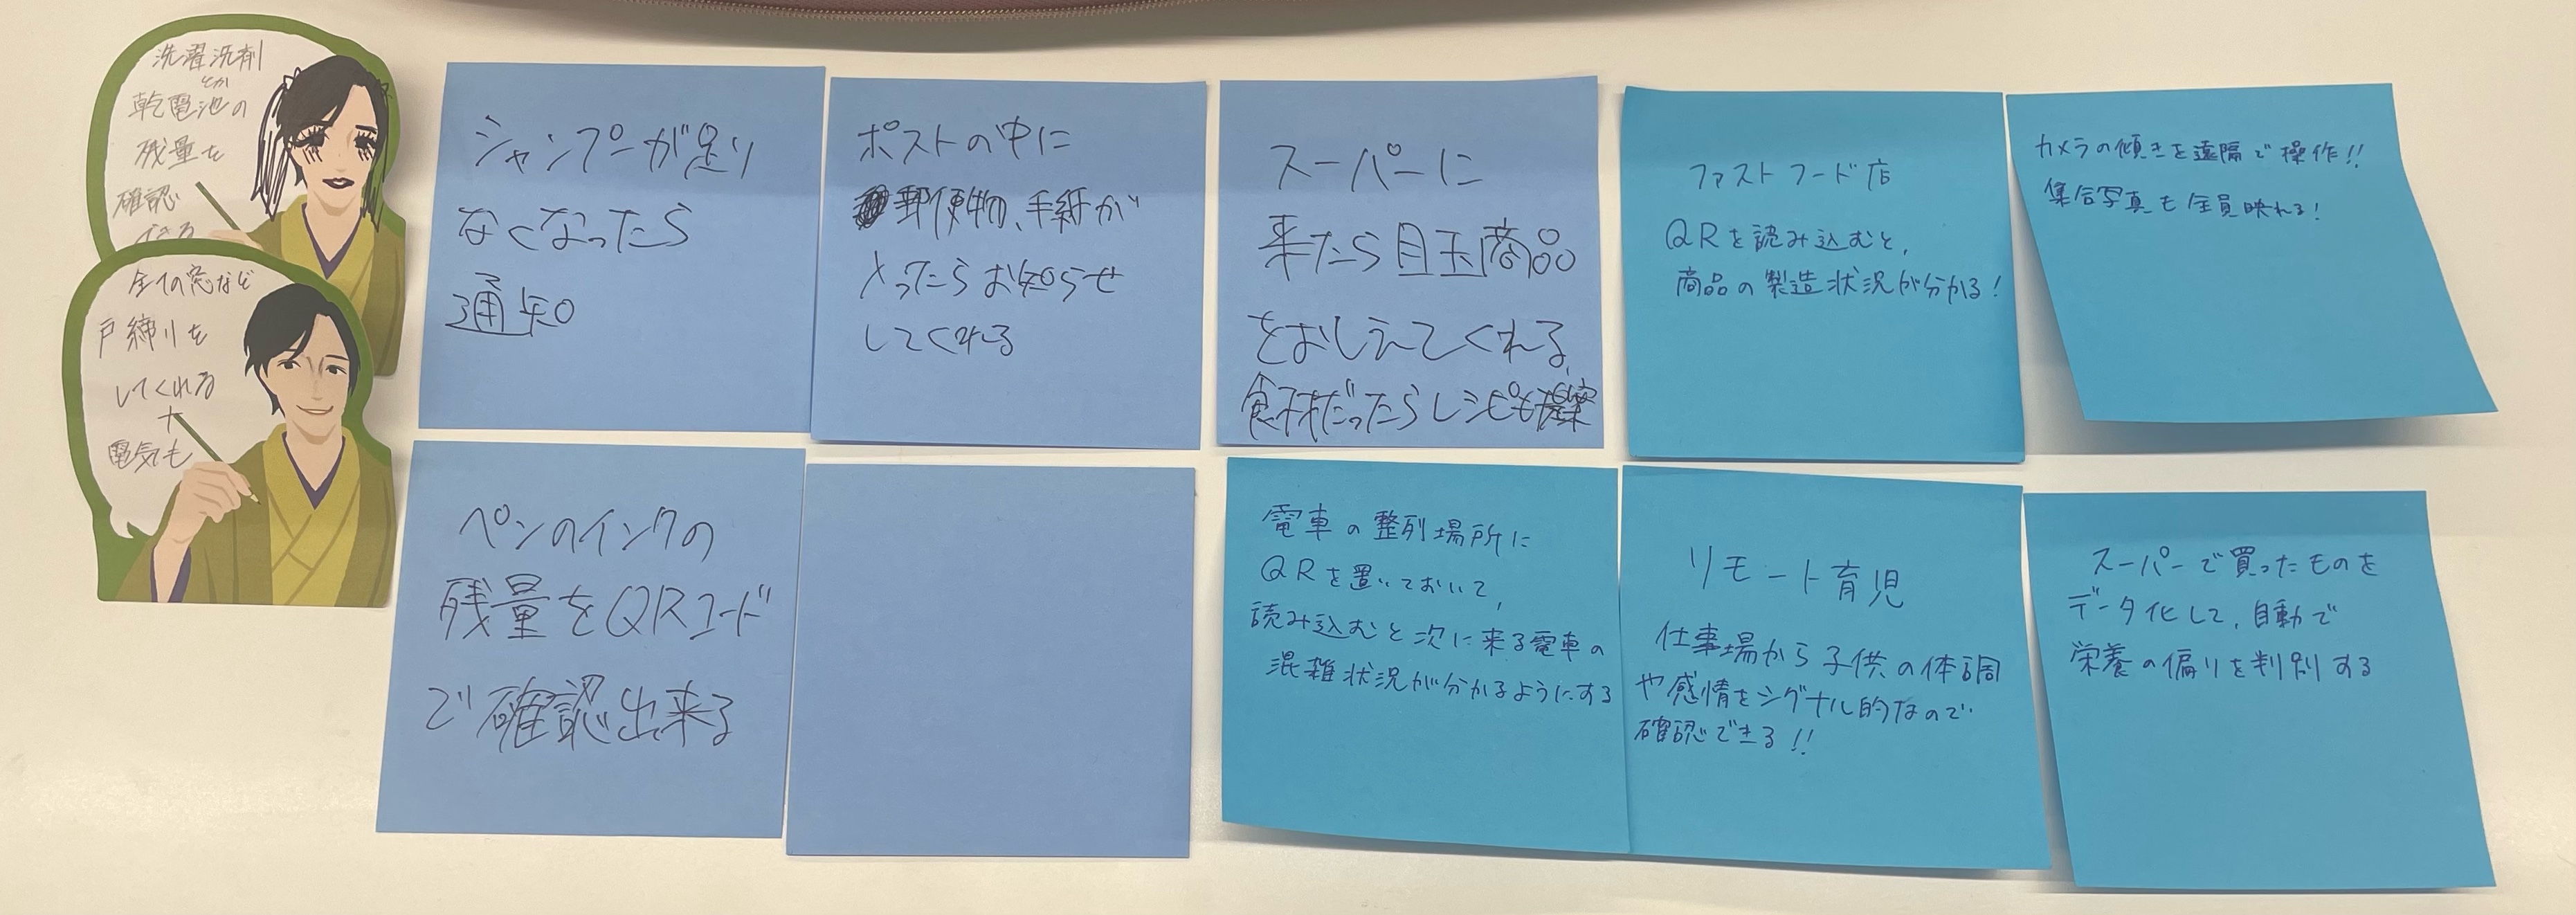 洗濯洗剤
とか
乾電池の
残量を
確認
できる
全ての窓など
戸締りを
してくれる
+
電気も
シャンプーが足り
なくなったら
通知
ポストの中に
郵便物、手紙が
入ったらお知らせ
してくれる
スーパーに
来たら目玉商品
をおしえてくれる,
食材だったらレシピも提案
ファストフード店
QRを読み込むと,
商品の製造状況が分かる!
カメラの傾きを遠隔で操作!!
集合写真も全員映れる!
ペンのインクの
残量をQRコード
で確認出来る
電車の整列場所に
QRを置いておいて,
読み込むと次に来る電車の
混雑状況が分かるようにする
リモート育児
仕事場から子供の体調
や感情をシグナル的なので
確認できる!!
スーパーで買ったものを
データ化して,自動で
栄養の偏りを判別する